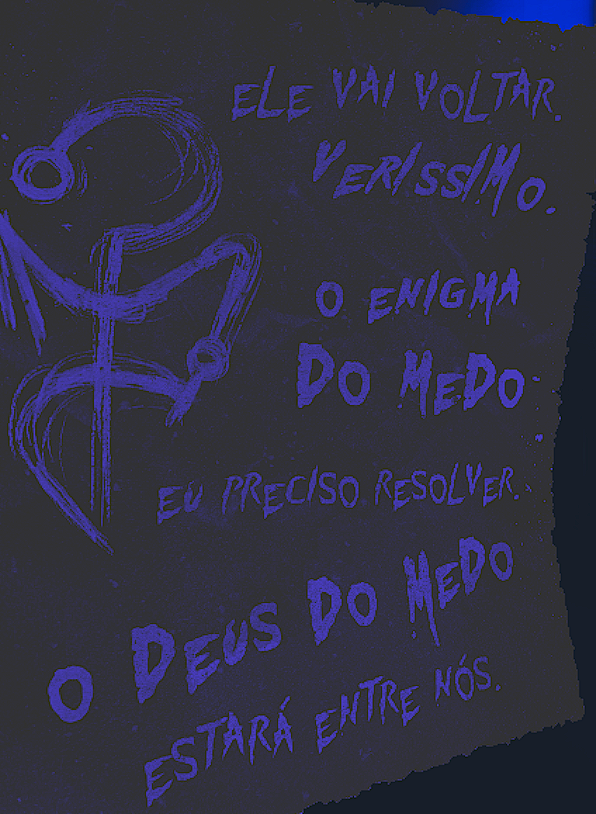 ELE VAI VOLTAR.
VERISSIMO.
O ENIGMA
DO MEDO
EU PRECISO RESOLVER.
O DEUS DO MEDO
ESTARÁ ENTRE NÓS.